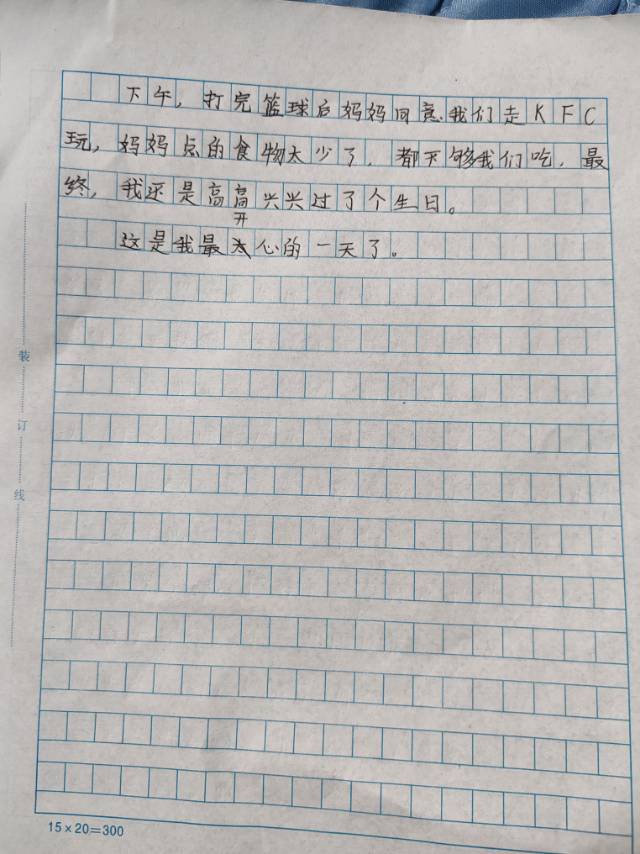 下午,打完篮球后妈妈同意我们走KFC
玩,妈妈点的食物太少了,都不够我们吃,最
终,我还是高高兴兴过了个生日。
开
这是我最心的一天了。
装
订
线
15×20=300